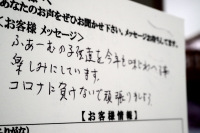 あなたのお声をぜひお聞かせ下さい。メッセージお待ちしてます。
【お客様 メッセージ】
ふぁーむの子供達を今年も味わつる事
楽しみにしています。
コロナに負けないで頑張りましょう
【お客様情報】